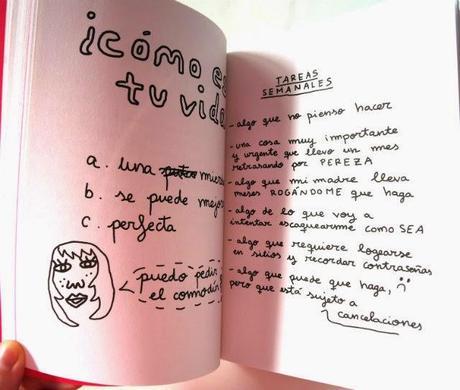 ¿cómo e
tu vida
a. una puta mier
b. se puede mejo
c. perfecta
puedo pedir
el comodín
TAREAS
SEMANALES
- algo que no pienso hacer
- una cosa muy importante
y urgente que llevo un mes
retrasando por PEREZA
- algo que mi madre lleva
meses ROGÁNDOME que haga
- algo de lo que voy a
intentar escaquearme como SEA
- algo que requiere logearse
en sitios y recordar contraseñas
- algo que puede que haga,
pero que está sujeto a
cancelaciones